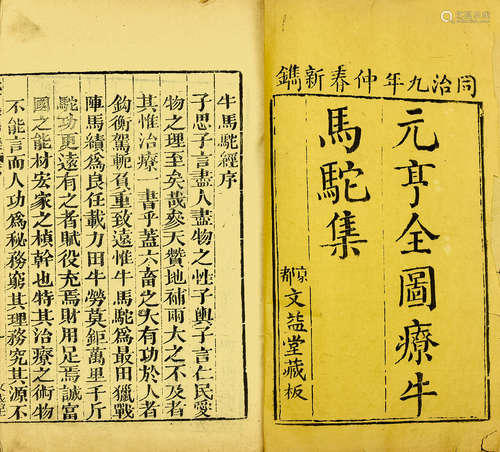 同治九年仲春新鐫
元亨全圖療牛
馬駝集
京都文益堂藏板
牛馬駝經序
子思子言盡人盡物之性子輿子言仁民愛
物之理至矣哉參天贊地補兩大之不及者
其惟治療書乎蓋六畜之大有功於人者
鈞衡駕軛負重致遠惟牛馬駝為最田獵戰
陣馬績為良任載力田牛勞莫鉅萬里千斤
駝功更遠有之者賦役充焉財用足焉誠富
國之能材宏家之楨幹也特其治療之術物
不能言而人功為秘務窮其理務究其源不